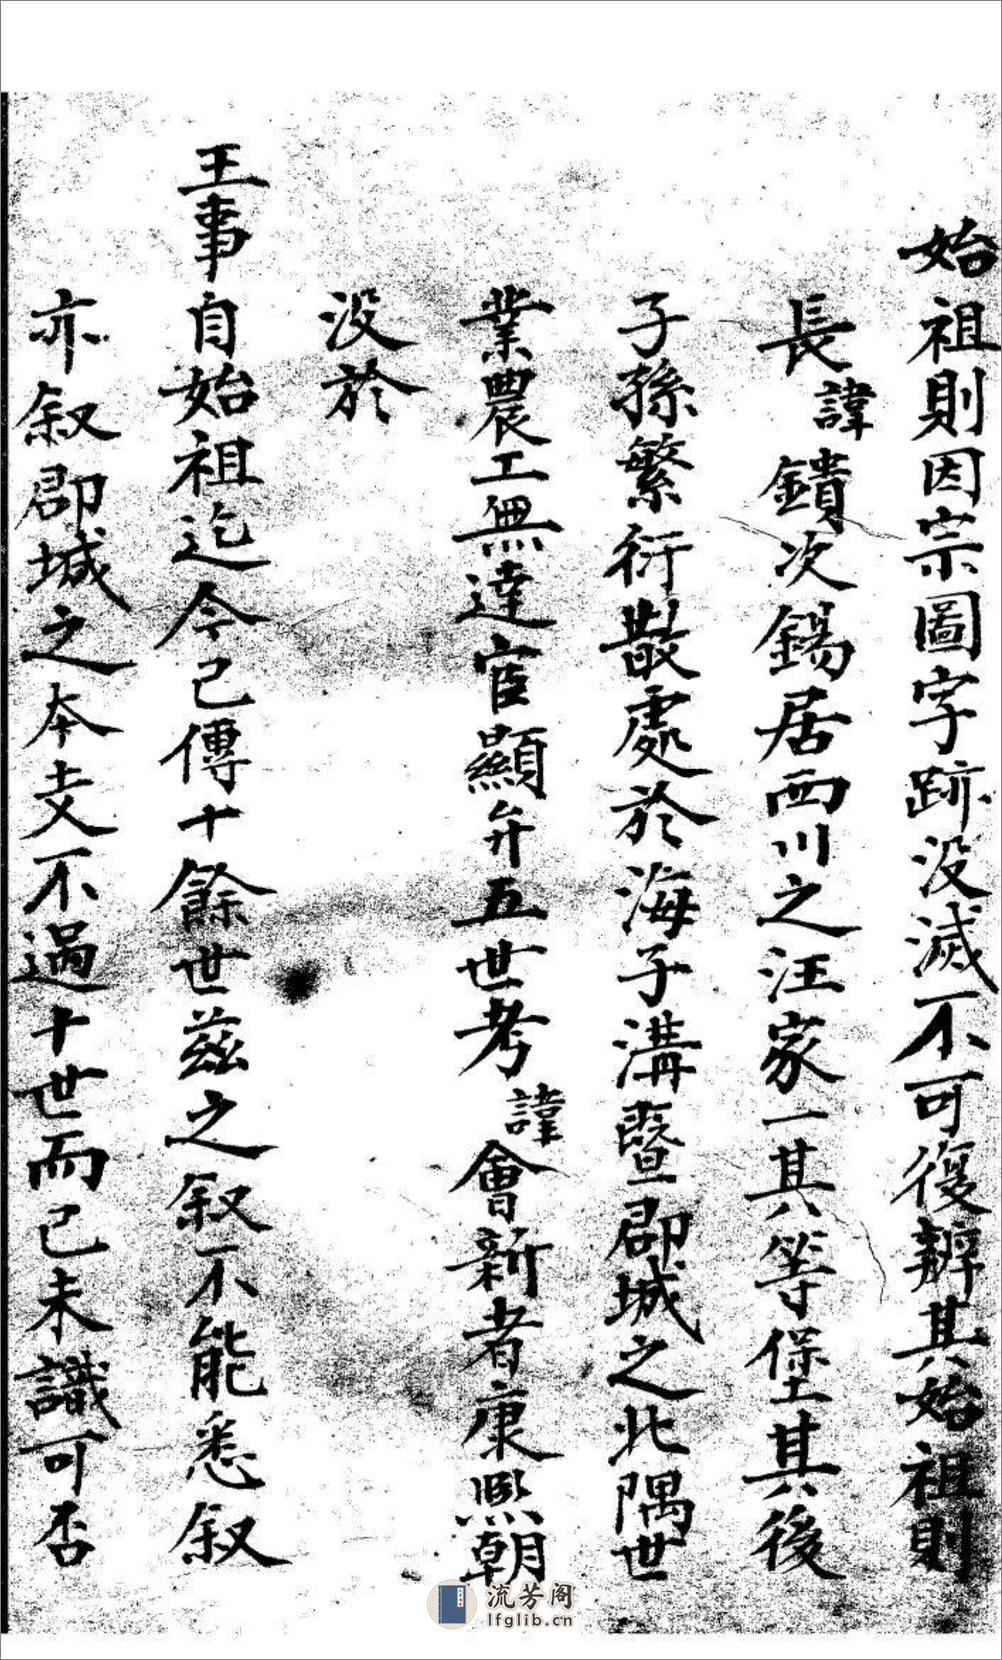 始祖則因宗圖字跡没滅不可復辨其始祖則
長諱鐼次錫居西川之汪家一其等堡其後
子孫繁衍散處於海子溝暨郡城之北隅世
業農工無達宦顯弁五世考諱會新者康熙朝
没於
王事自始祖迄今已傳十餘世茲之叙不能悉叙
亦叙郡城之本支不過十世而已未識可否
流芳阁
lfglib.cn